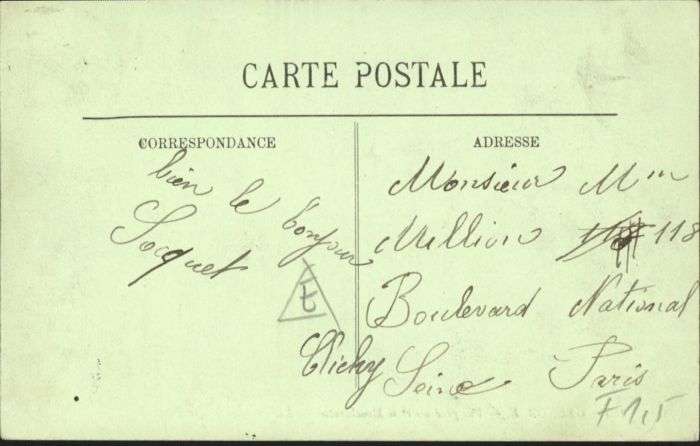 CARTE POSTALE
CORRESPONDANCE
bien le bonjour
Socquet
ADRESSE
Monsieur Mme
Million 118
Boulevard National
Clichy Seine Paris
F 1,5